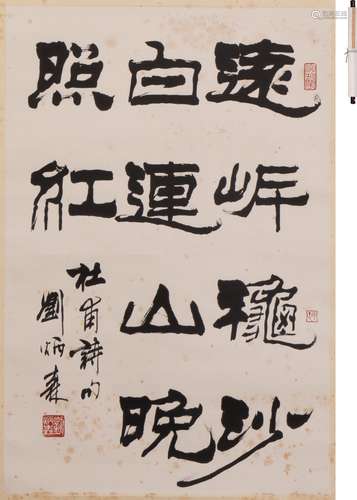 遠岸龝沙
白連山晚
照紅
杜甫詩句
劉炳森